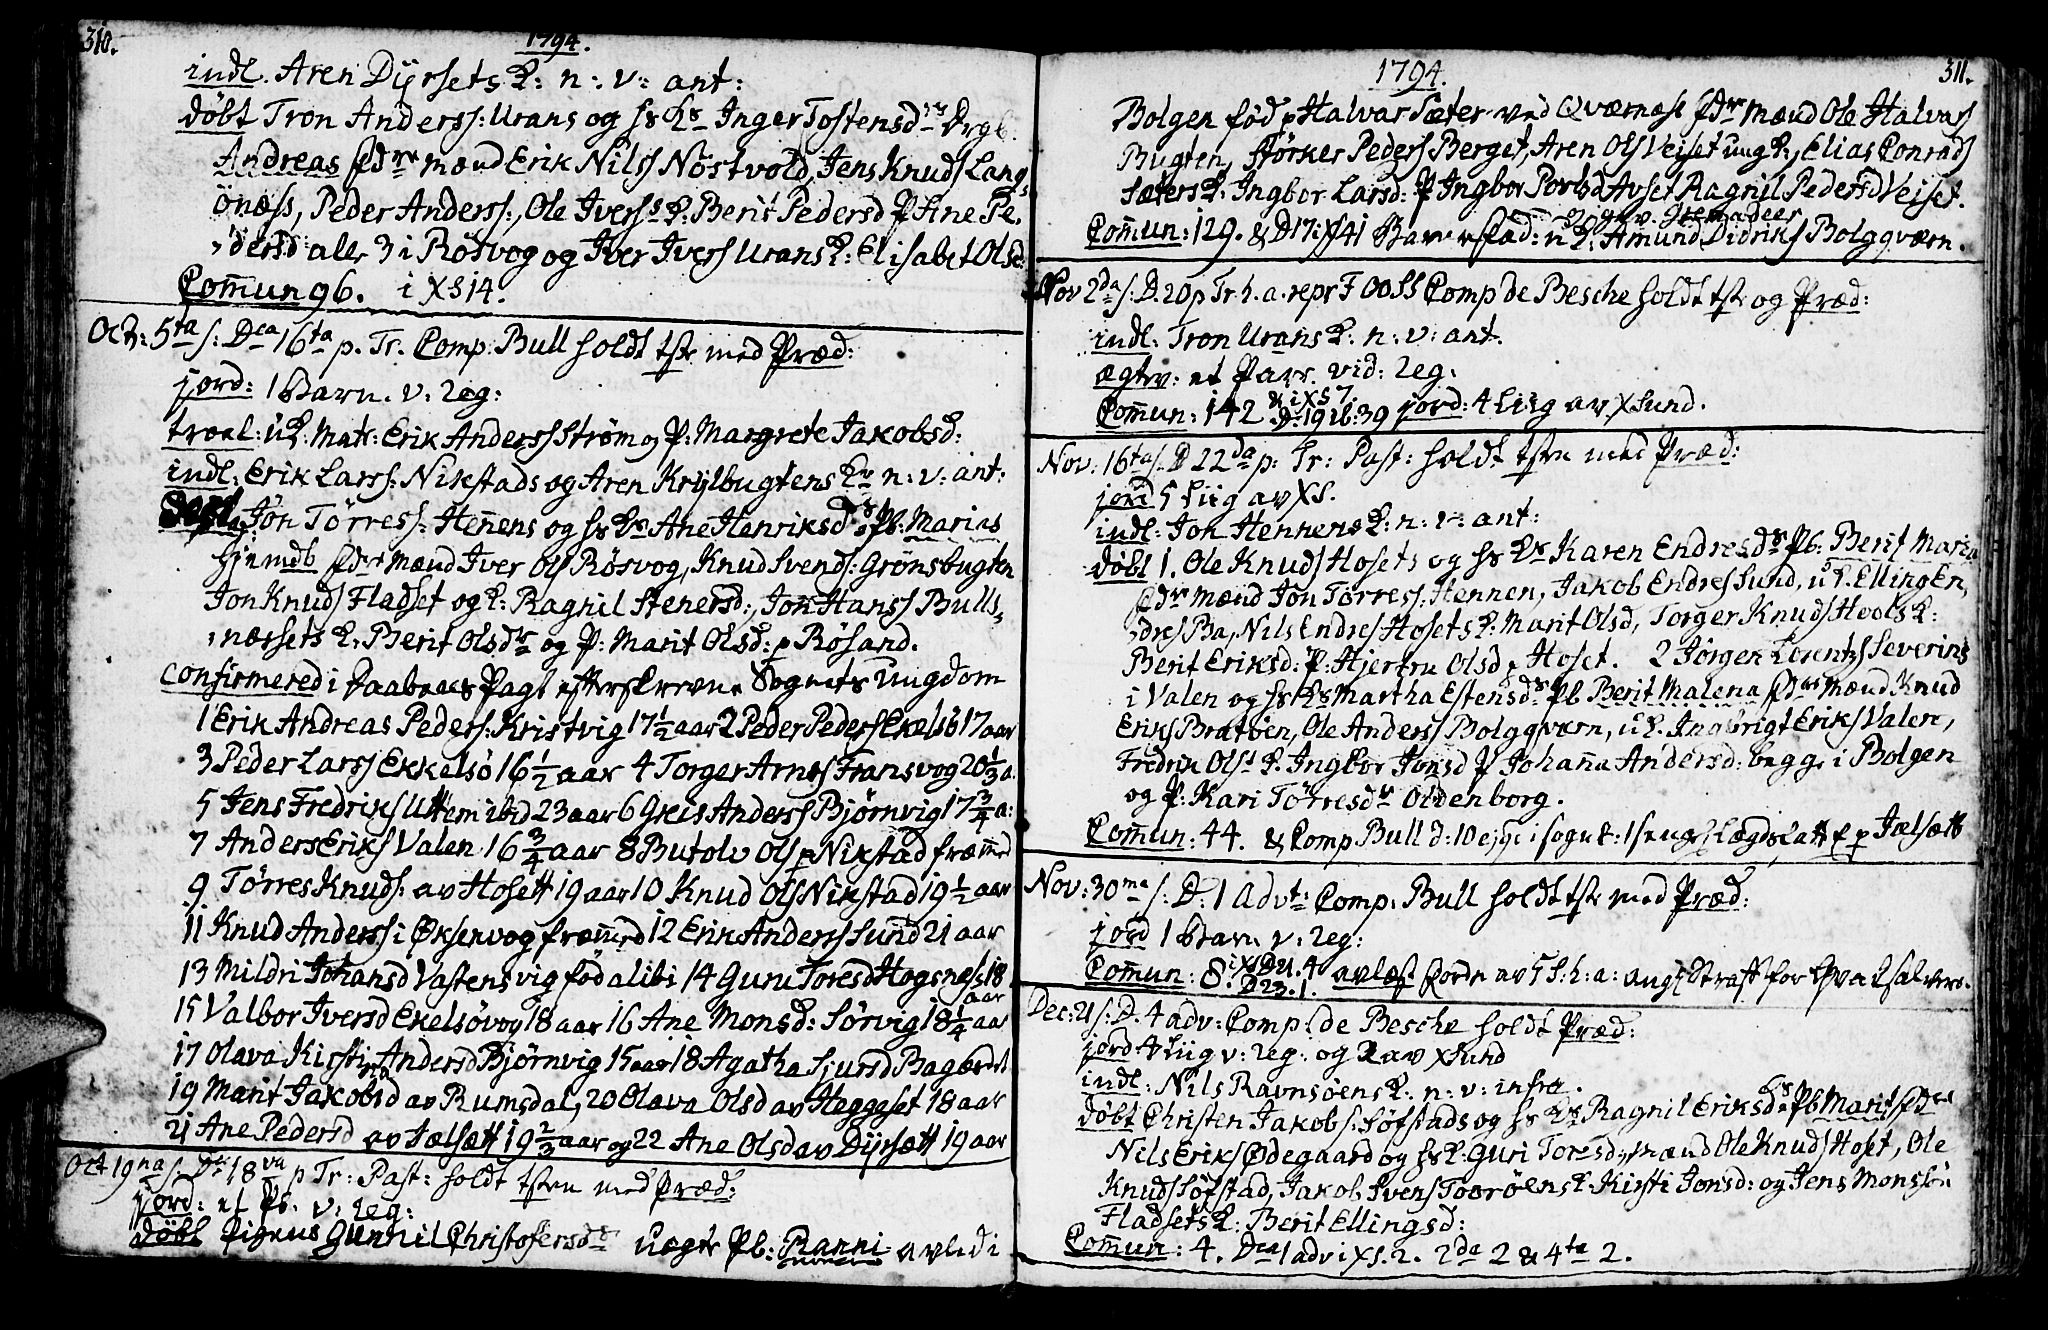 310.
1794.
indl. Aren Dyrsets K: n: v: ant:
døbt Tron Anderss: Urans og hs Ks Inger Tostensdrs Drgb.
Andreas fdre mænd Erik Nilss Nøstvold, Jens Knuds Lang
önæss, Peder Anderss:, Ole Iverss K: Berit Pedersd P Ane Pe,
dersd alle 3 i Røsvog og Iver Ivers Urans K: Elisabet Olsd
Comun 96. i XS 14.
Oct: 5ta s: Dca 16ta p. Tr. Comp. Bull holdt tste med Præd:
jord: 1 Barn. v: leg:
trol: uK: Matr: Erik Anderss Strøm og P: Margrete Jakobsd:
indl: Erik Larss: Nikstads og Aren Krylbugtens Kr n: v: ant:
Jön Törress: Hennens og hs Ks Ane Henriksdrs Pb: Marias
hjemdb fdre mænd Iver Ols Røsvog, Knud Svends: Grönsbugten
Jon Knuds Fladset og K: Ragnil Stenersd:, Jon Hanss Bulls,
næssets K: Berit Olsdr og P: Marit Olsd: p Røsand.
confirmered i Daabens Pagt efterskrevne Sognets Ungdom
1 Erik Andreas Peders: Kristvig 17 1/2 aar 2 Peder Peders Ekelsö 17 aar
3 Peder Larss Ekkelsö 16 1/2 aar 4 Torger Arness Fransvog 20 1/3 a:
5 Jens Fredriks Uttem ibid 23 aar 6 Greis Anderss Bjørnvig 17 3/4 a:
7 Anders Eriks Valen 16 3/4 aar 8 Butolv Ols p Nikstad fræmed
9 Törres Knuds: av Hosett 19 aar 10 Knud Ols Nikstad 19 1/2 aar
11 Knud Anderss i Øksenvog fræmed 12 Erik Anderss Sund 21 aar
13 Mildri Johansd Vastensvig fød alibi 14 Guru Toresd Hogsnæss 18
aar
15 Valbor Iversd Ekelsövog 18 aar 16 Ane Monsd: Sörvig 18 1/4 aar
17 Olava Kirstina Andersd Bjørnvig 15 aar 18 Agatha Sjursd Bagærdet
19 Marit Jakobsd av Rumsdal, 20 Olava Olsd av Heggeset 18 aar
21 Ane Pedersd av Jælsætt 19 2/3 aar og 22 Ane Olsd av Dyrsætt 19 aar
Oct 19na s: Dca 18va p Tr: Past: holdt tsten med Præd:
jord: et Pb. v: leg:
døbt Pigens Gunnil Christofersds uegte Pb: Ranni avled i
311.
1794.
Bolgen fød p Halvar Sæter ved Qværnæss fdre mænd Ole Halvars
Bugten, Störker Peders Berget, Aren Ols Veiset ung K, Elias Conrads
Sæters K. Ingbor Larsd: P Ingbor Povlsd Avset Ragnil Pedersd Veiset.
Comun: 129. & D 17: XS 41 Amund Didriks Bolgqværn.
Nov 2da s: D. 20 p Tr. h. a. repr F OOSS Comp de Besche holdt tste og Præd:
indl: Tron Urans K: n: v: ant.
ægtev: et Parr. vid: leg.
Comun: 142 & i XS 7. D: 19 ib: 39 jord: 4 Liig av XSund.
Nov: 16ta s: D 22da p: Tr: Past: holdt tsten med Præd:
jord 5 Liig av XS.
indl: Jon Hennens K: n: v: ant:
døbt 1. Ole Knuds Hosets og hs Ks Karen Endresdrs Pb: Berit Maria
fdre mænd Jön Törress: Hennen, Jakob Endres Sund, uK. Elling En,
dres Ba, Nils Endres Hosets K: Marit Olsd, Torger Knuds Heols K:
Berit Eriksd: P: Hjertru Olsd p Hoset. 2 Jörgen Lorentz Severins
i Valen og hs Ks Martha Estensdrs Pb Berit Malena fdre Mænd Knud
Eriks Bratøen, Ole Anders Bolgqværn, uK. Ingbrigt Eriks Valen,
Fredrik Ols K. Ingbor Jonsd P Johanna Andersd: begge i Bolgen
og P: Kari Törresdr Oldenborg.
Comun: 44. & Comp Bull d: 10
Nov: 30ma s: D: 1 Advt: Comp: Bull holdt tste med Præd:
jord 1 Barn v: leg:
Comun: 8. i XS D 21. 4 D 23. 1. avlæst
Dec: 21 s: D. 4 adv: Comp: de Besche holdt Præd:
jord 4 Liig v: leg: og 2 av XSund
indl: Nils Ravnsöens K: n: v: infra.
döbt Christen Jakobs: Söfstads og hs Ks Ragnil Eriksdrs Pb Marit fdre
Nils Eriks Ødegaard og hs K. Guri Toresd, mænd Ole Knuds Hoset, Ole
Knuds Söfstad, Jakob Svens Toorøens K. Kirsti Jonsd: og Jens Monssön
Fladsets K: Berit Ellingsd:
Comun: 4. Dca 1 adv i XS. 2. 2da 2 & 4ta 2.